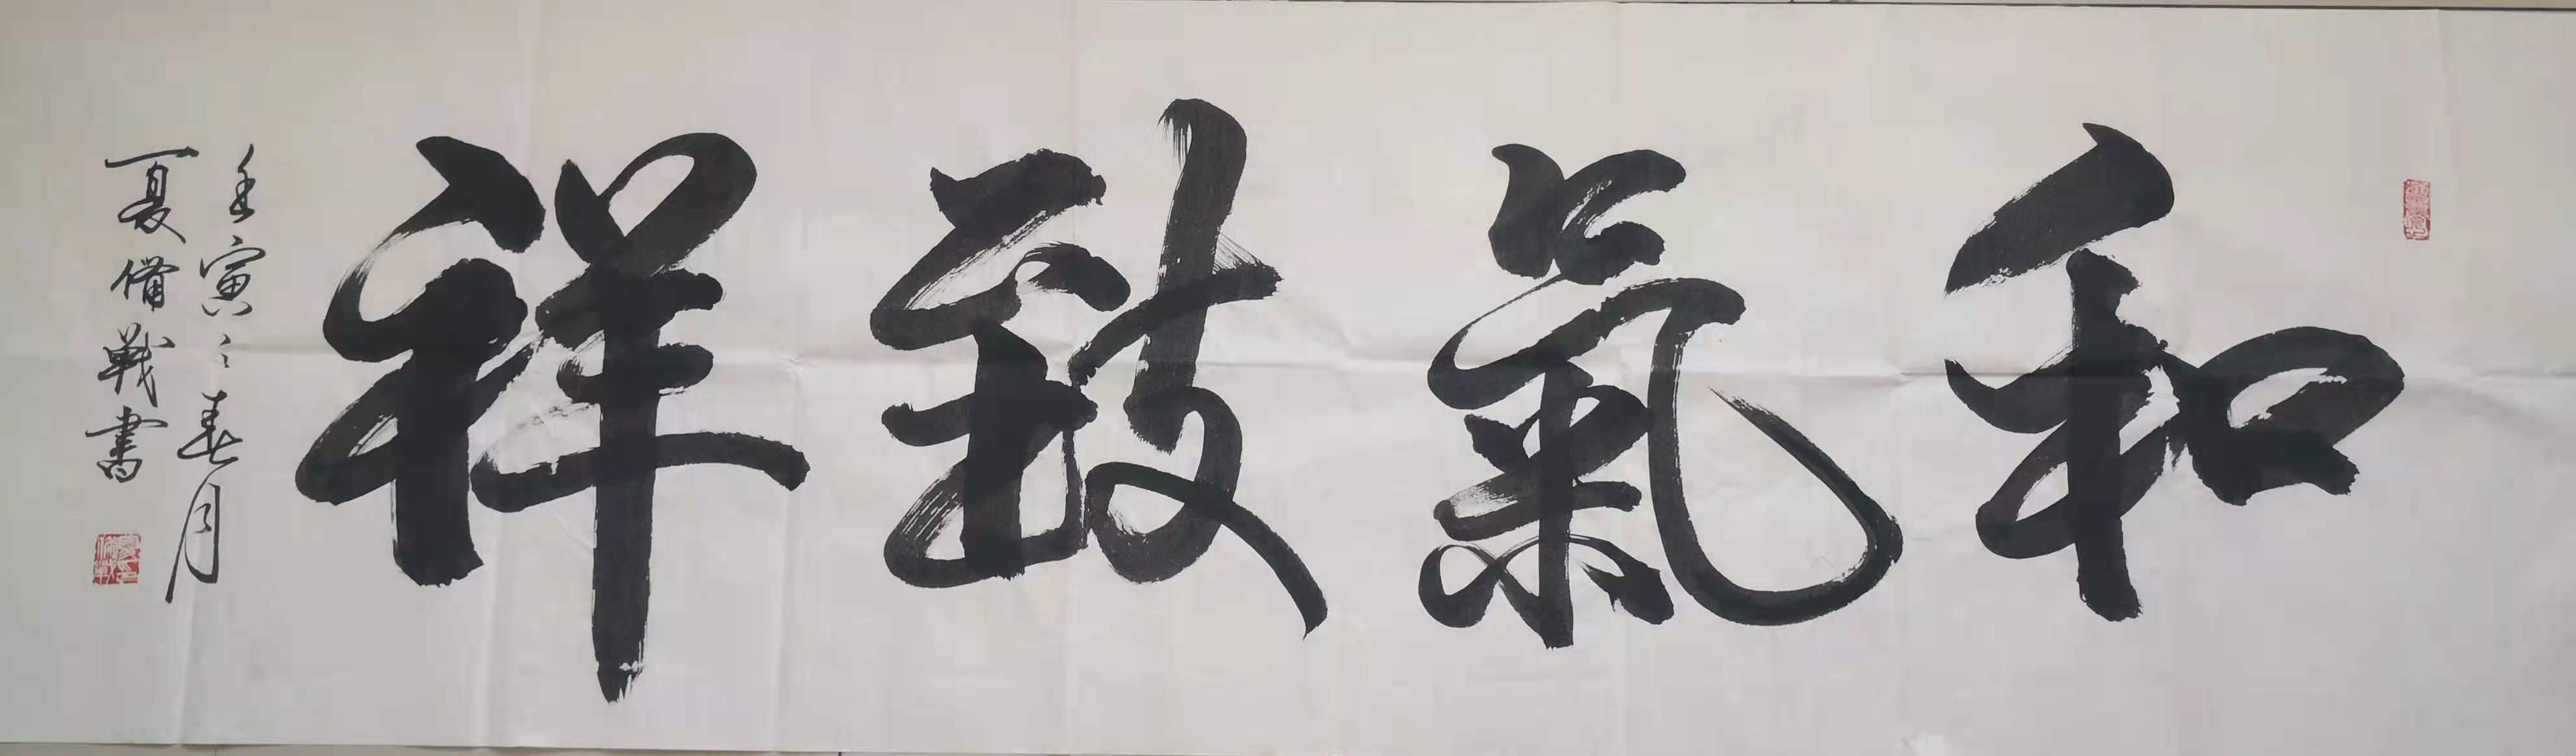 和氣致祥
壬寅之春月
夏備戰書